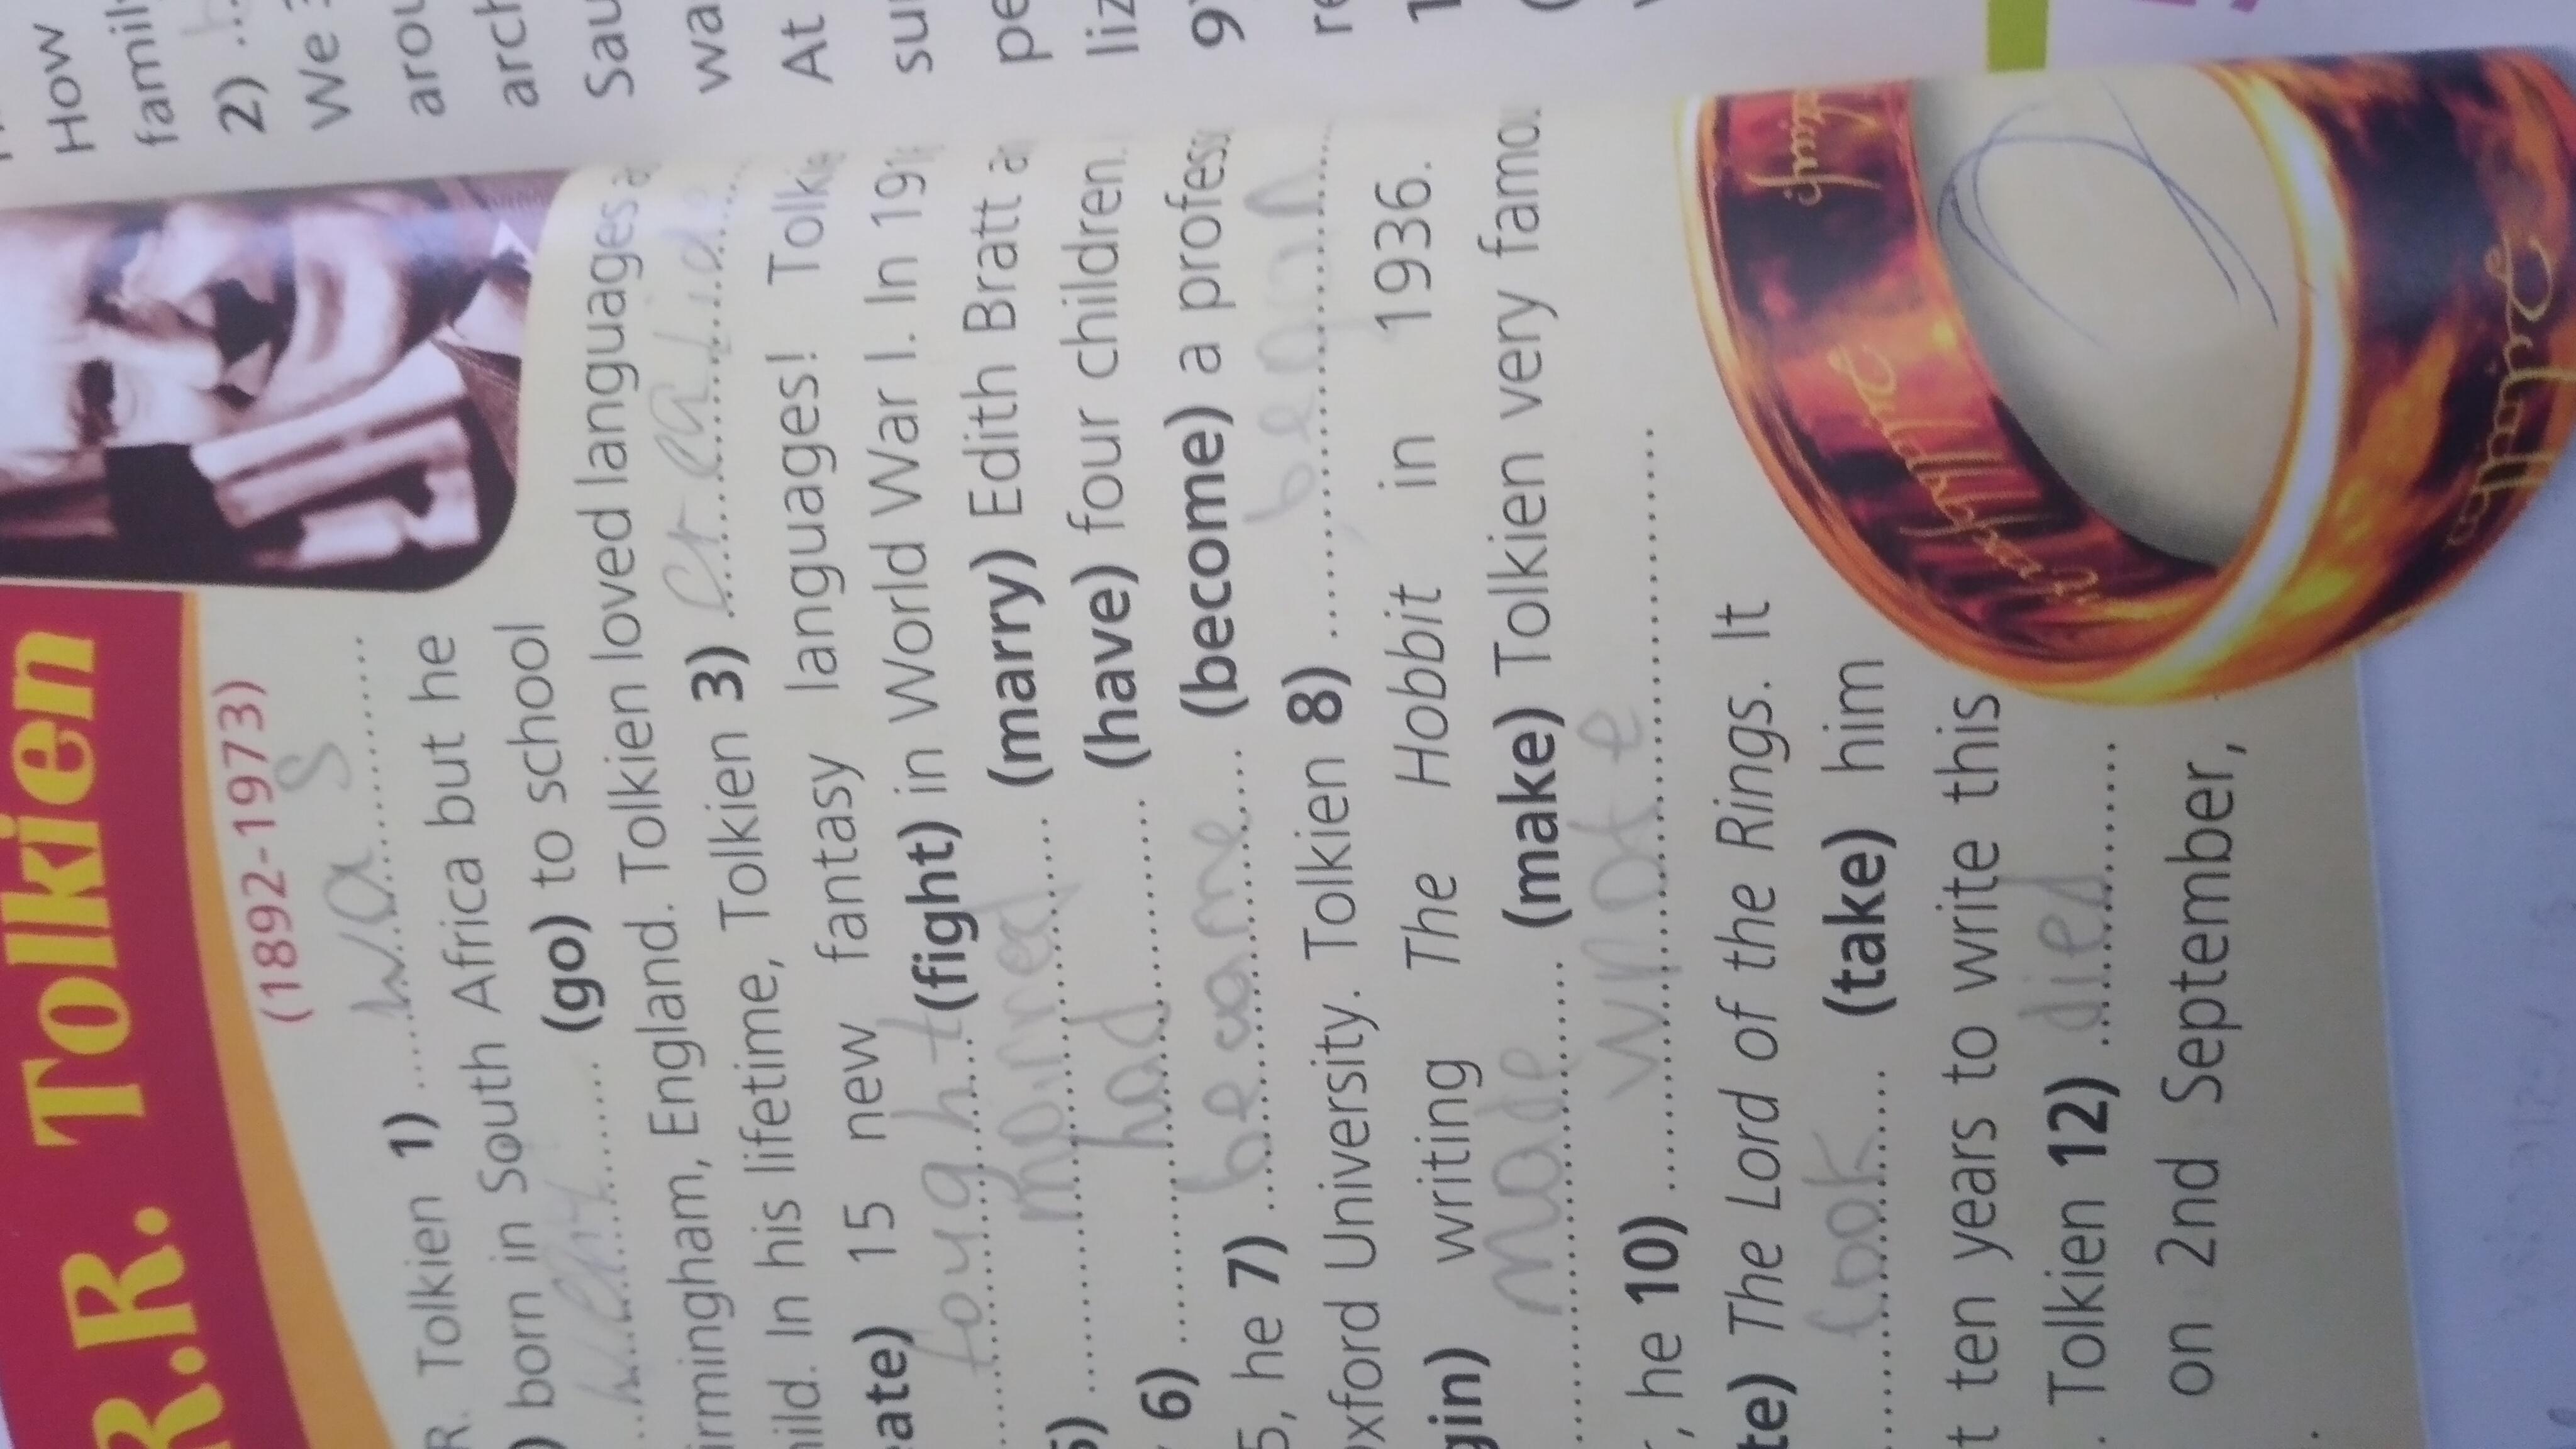 R.R. Tolkien
(1892-1973)
R. Tolkien 1) was
born in South Africa but he
went (go) to school
irmingham, England. Tolkien loved languages
hild. In his lifetime, Tolkien 3)
eate) 15 new fantasy languages! Tolk
fought (fight) in World War I. In 19
married (marry) Edith Bratt a
6) had (have) four children.
5, he 7) became (become) a profess
xford University. Tolkien 8) began
gin) writing The Hobbit in 1936.
made (make) Tolkien very famo
, he 10) wrote
te) The Lord of the Rings. It
took (take) him
t ten years to write this
. Tolkien 12) died
on 2nd September,
How
family
2)
We
arou
arch
Sau
wa
At
su
pe
liz
9)
re
1